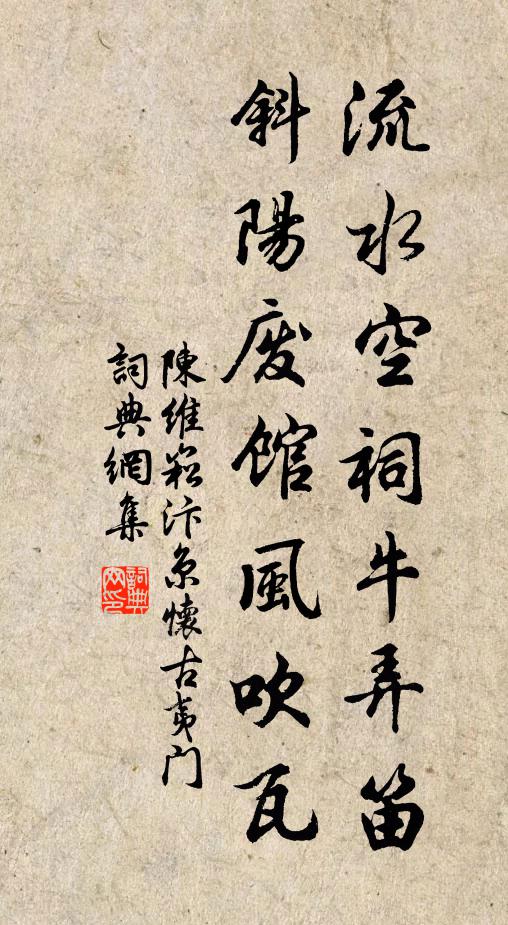 流水空祠牛弄笛
斜陽废馆風吹瓦
陳維崧汴京懷古夷门
詞典網集
詞典網印